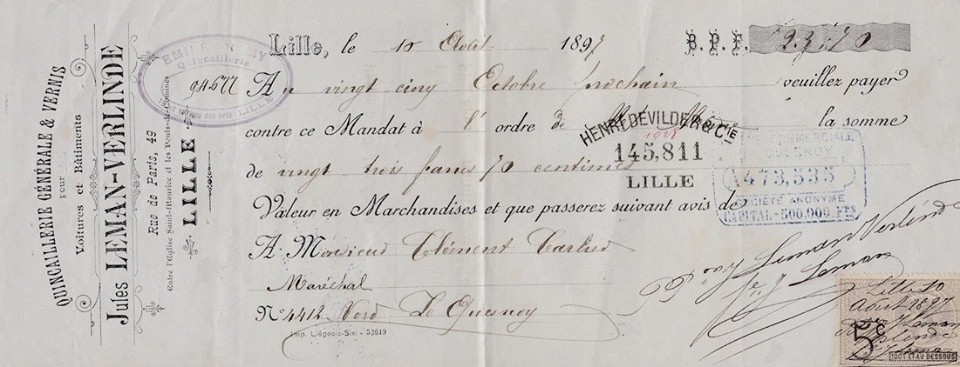 QUINCAILLERIE GÉNÉRALE & VERNIS
pour
Voitures et Bâtiments
Jules LEMAN-VERLINDE
Rue de Paris, 49
Entre l'Église Saint-Maurice et les Ponts-de-Comines
LILLE
EMILE
Quincaillerie
94577
LILLE
Lille, le 10 Août 1897 B.P.F. 23.70
Au vingt cinq Octobre prochain veuillez payer
contre ce Mandat à l'ordre de la somme
HENRI DEVILDER & Cie
145,811
LILLE
de vingt trois francs 70 centimes
QUESNOY
A473,535
SOCIÉTÉ ANONYME
CAPITAL-500.000 FRS
Valeur en Marchandises et que passerez suivant avis de
A Monsieur Clément Carlier
Maréchal
No 4412 Nord Le Quesnoy
Imp. Liégeois-Six. - 53619
Leman Verlinde
J. Leman
Lille 10
Août 1897
Leman
5c
100F ET AU DESSOUS